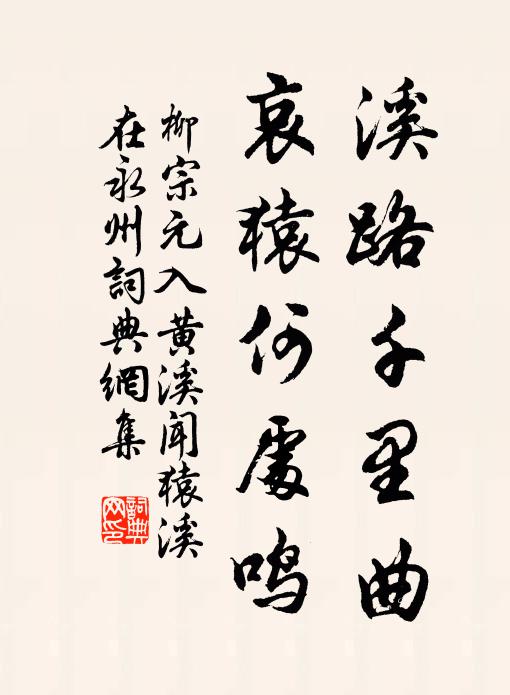 溪路千里曲
哀猿何處鳴
柳宗元入黄溪闻猿溪
在永州詞典網集
詞典網印